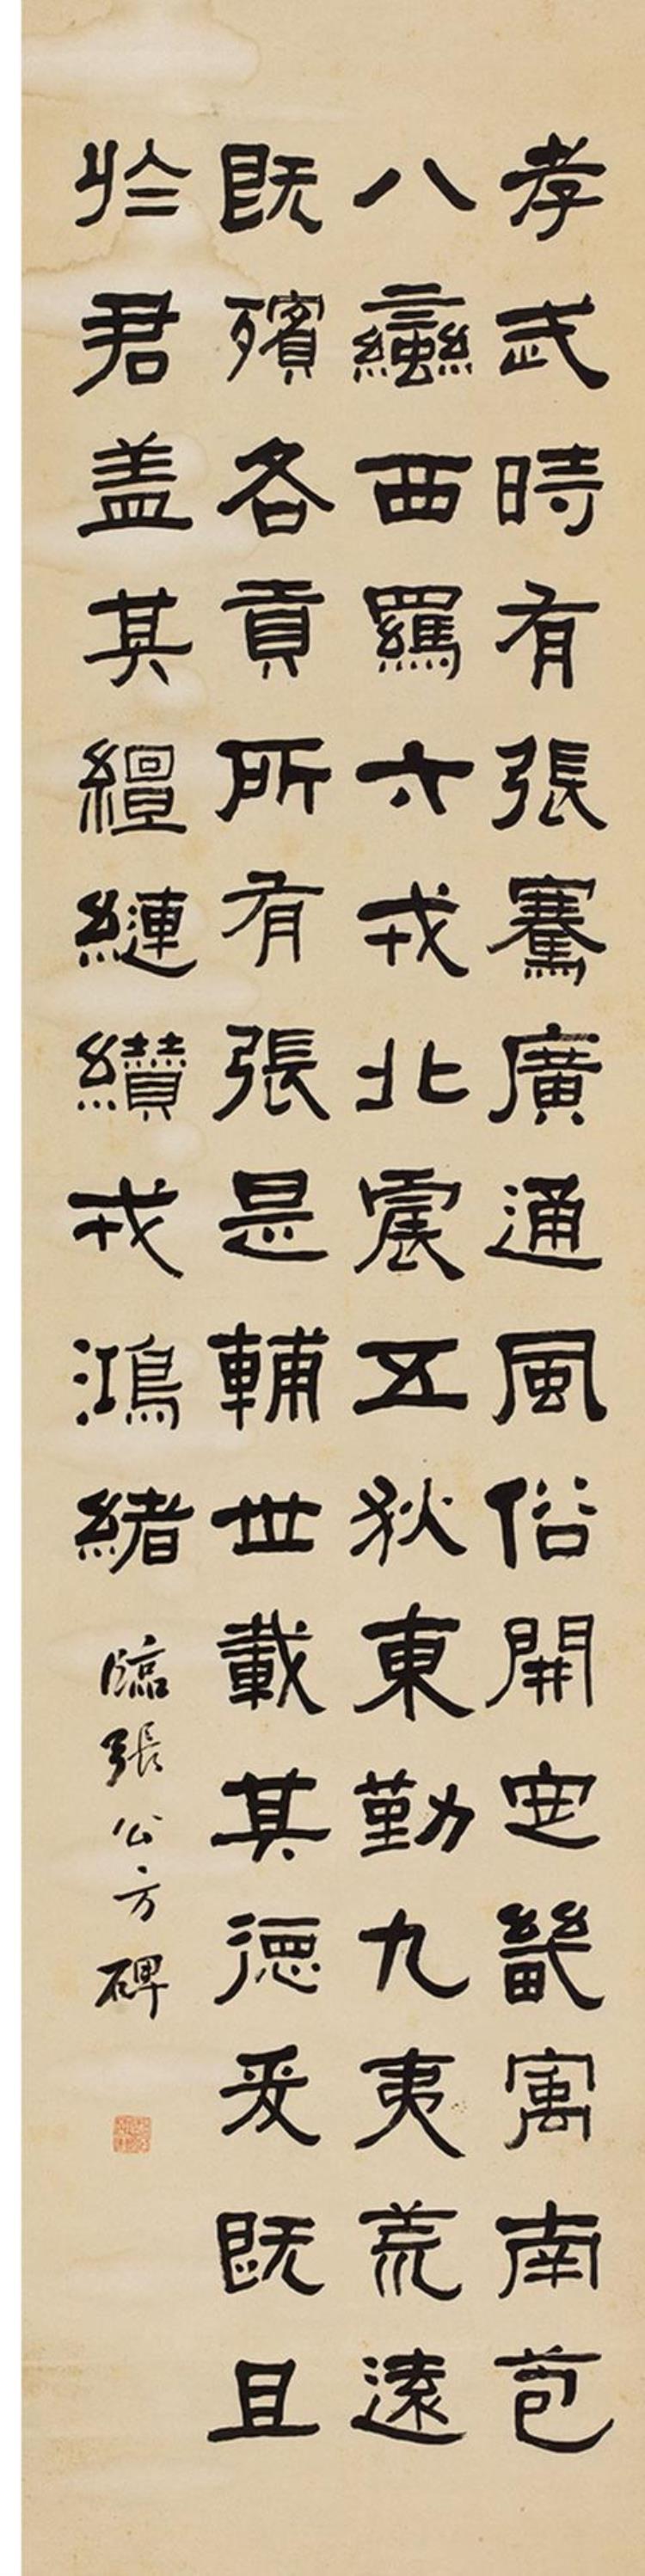 孝武時有張騫廣通風俗開定畿寓南苞
八蠻西羈六戎北震五狄東勤九夷荒遠
既殯各貢所有張是輔世載其德爰既且
於君盖其繵縺纘戎鴻緒 臨張公方碑